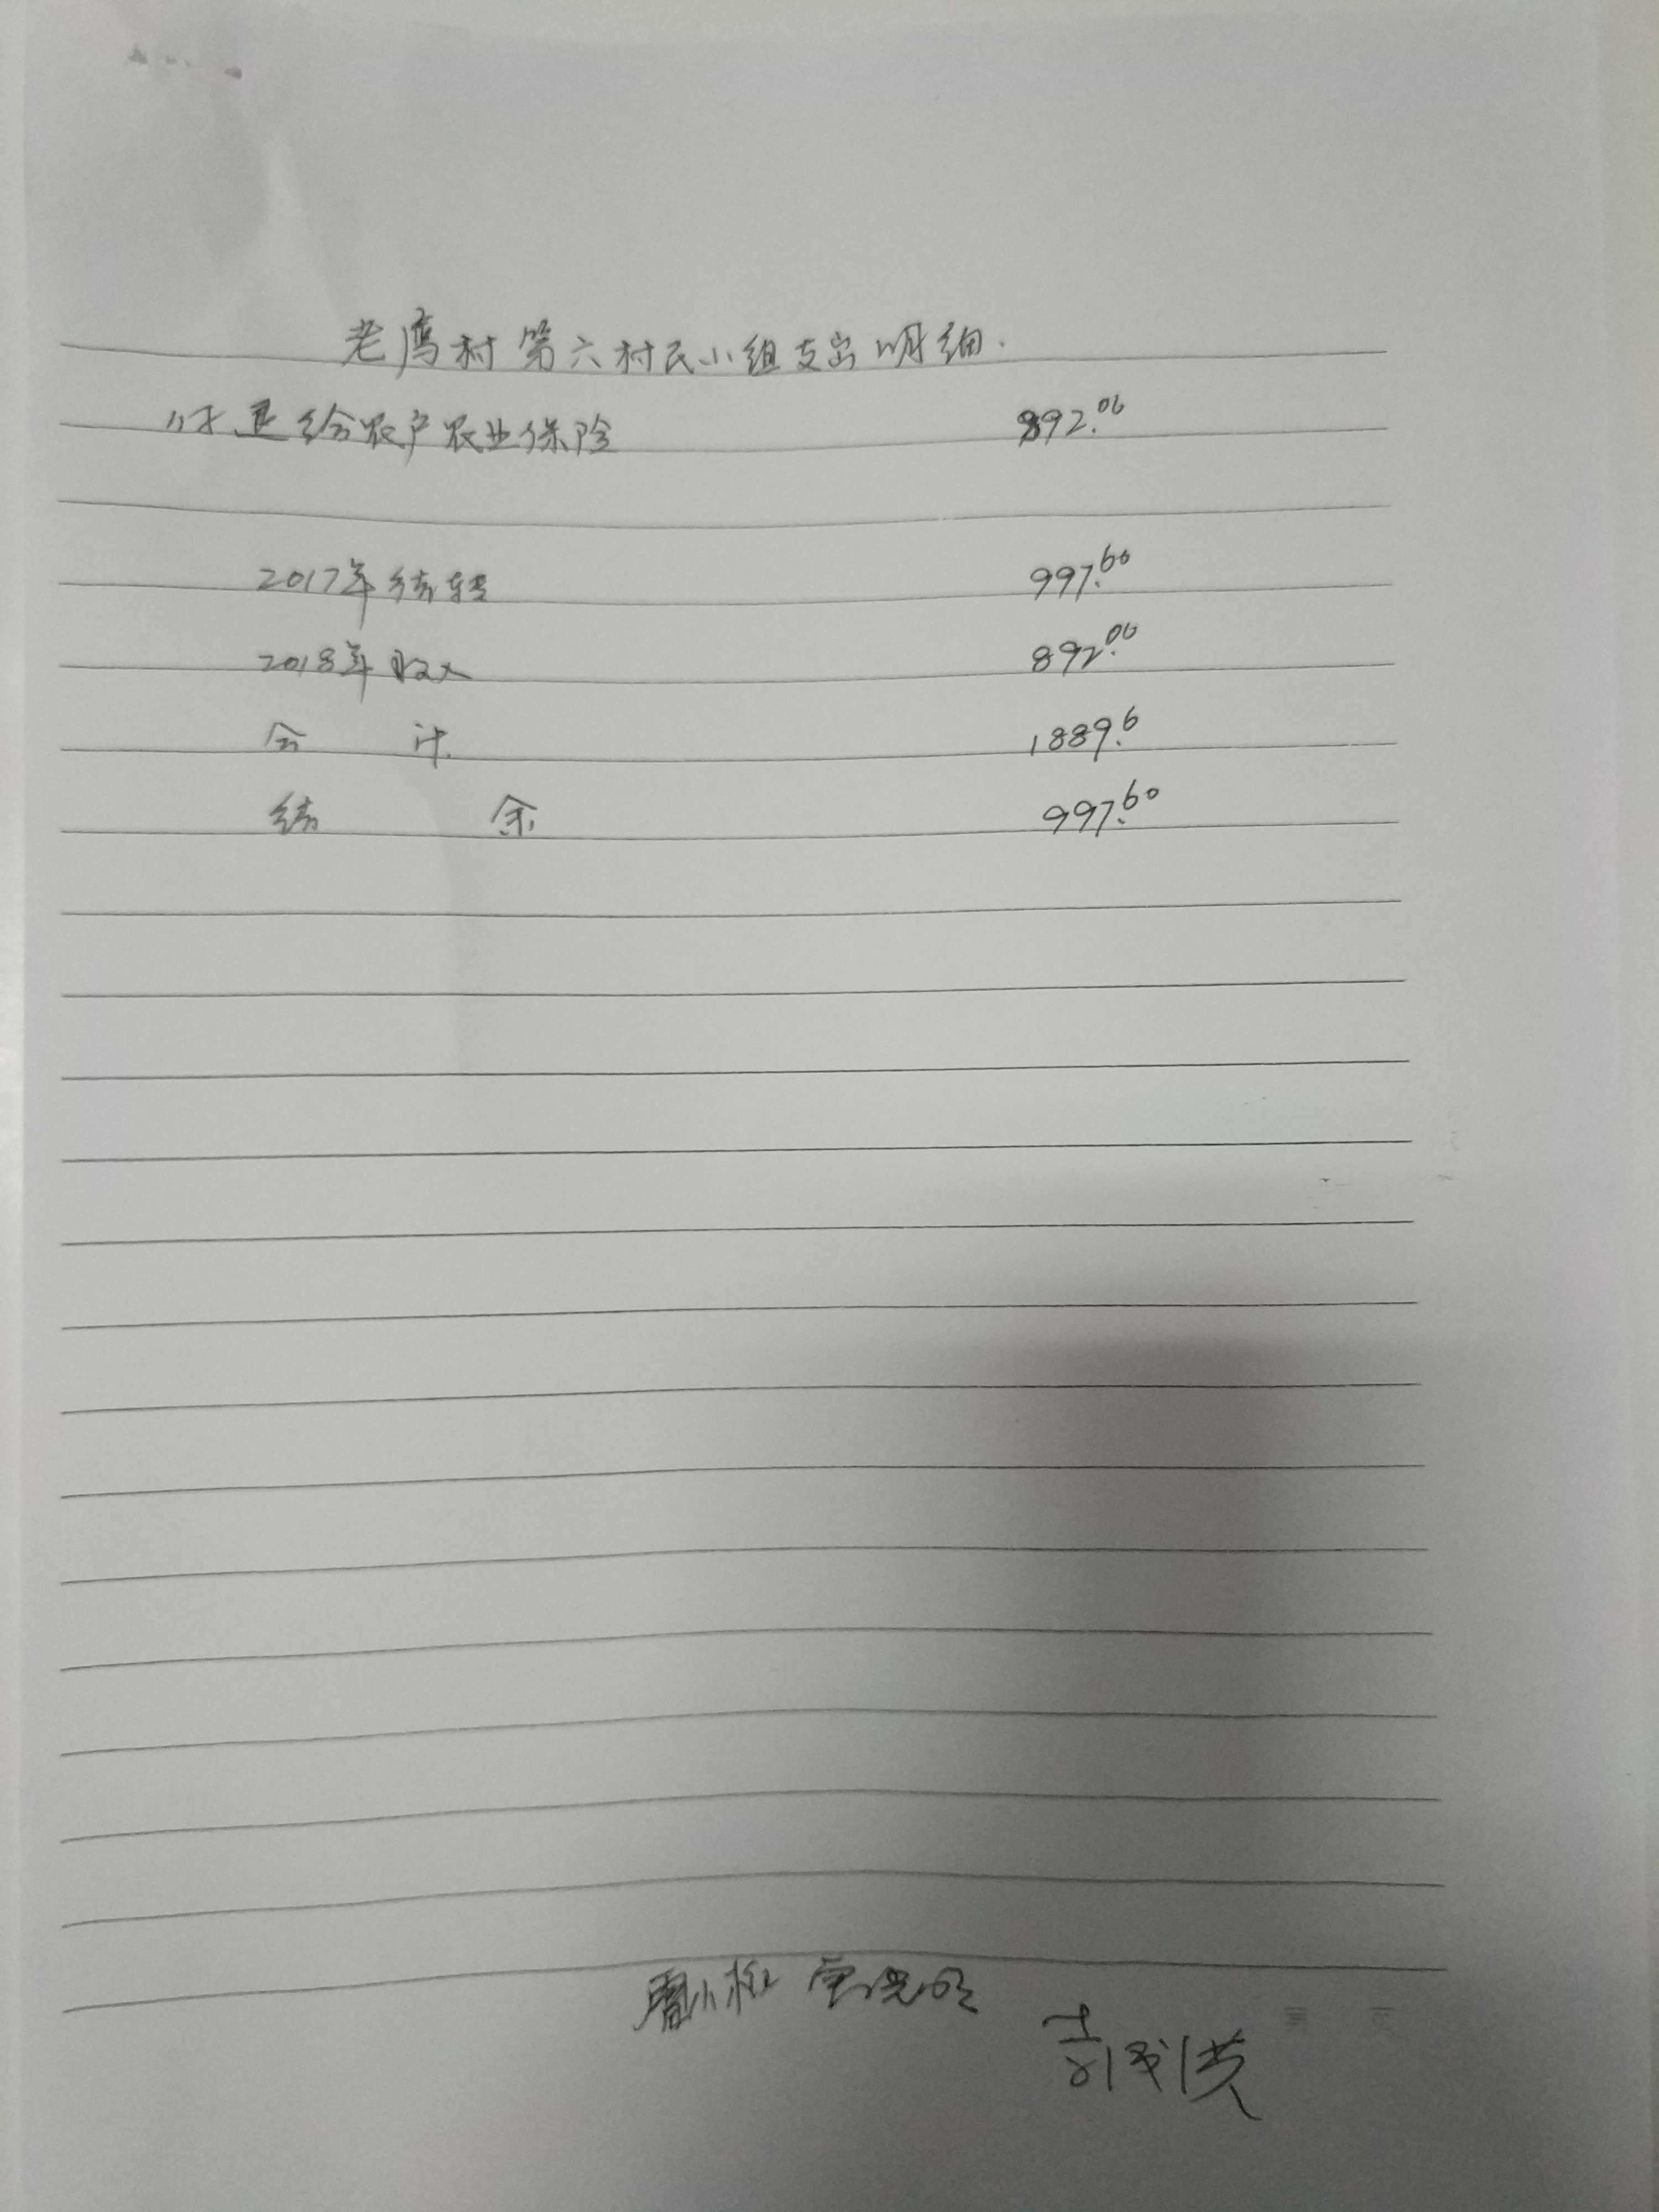 老鹰村第六村民小组支出明细.
付退给农户农业保险 892.00
2017年结转 997.60
2018年收入 892.00
合计 1889.6
结余 997.60
第 页